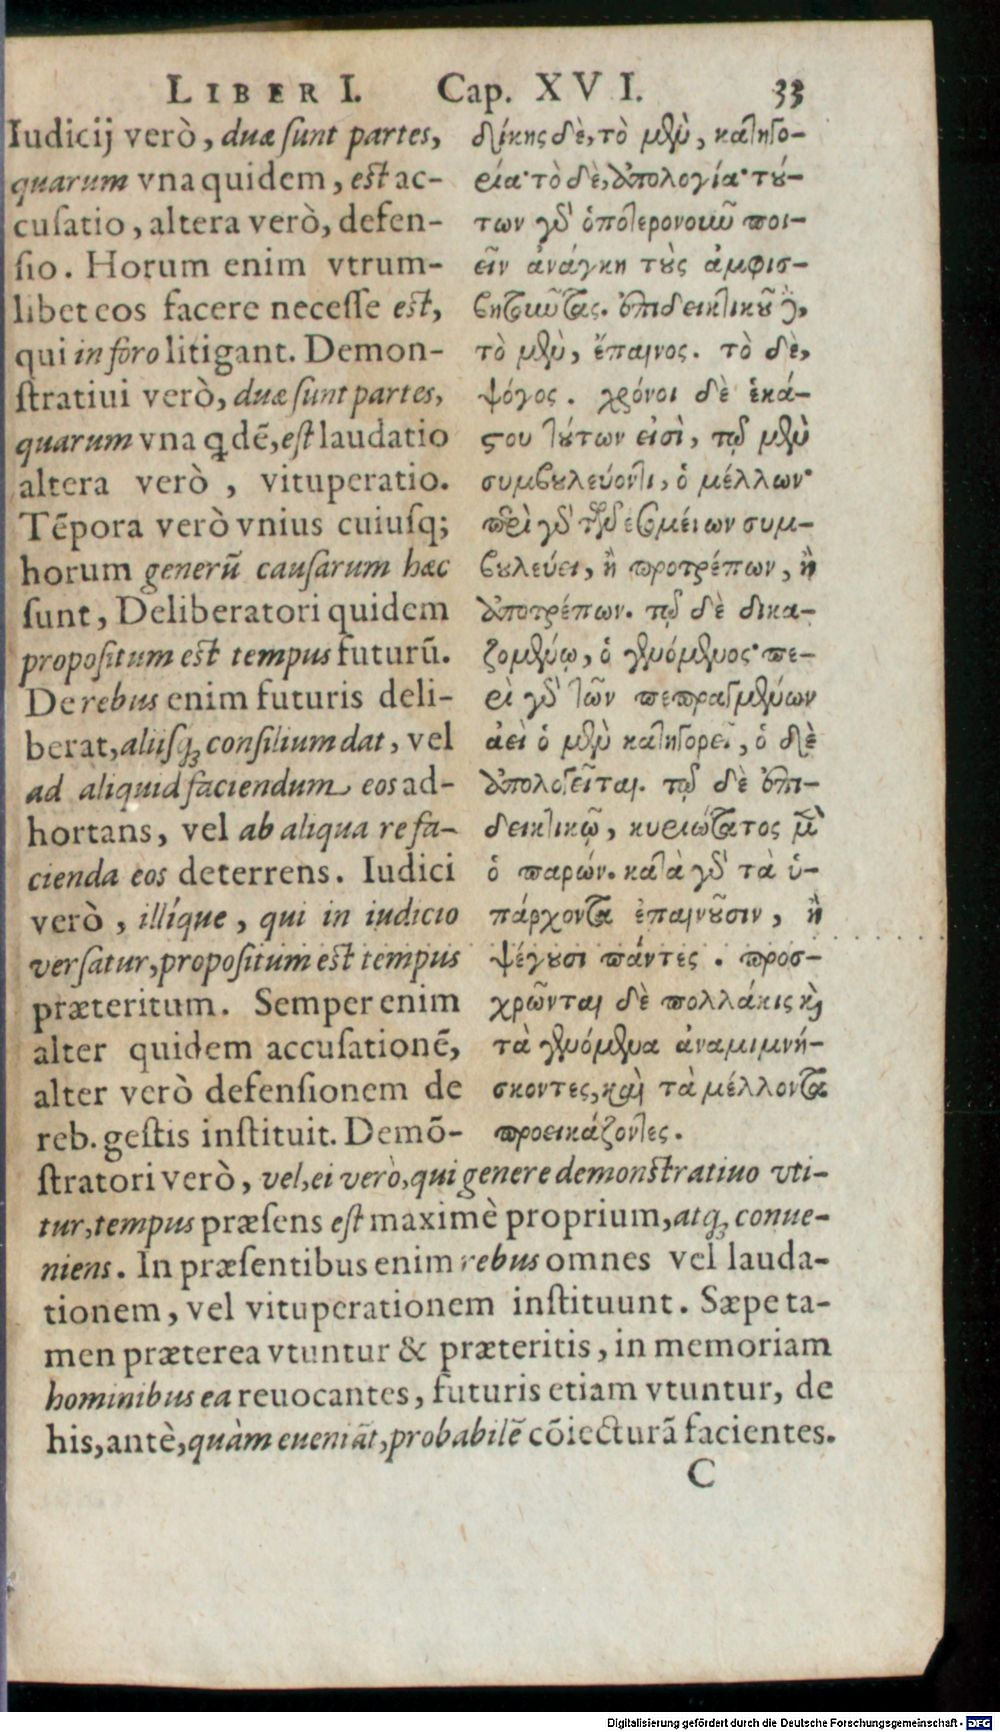 LIBER I. Cap. XVI. 33
Iudicij verò, duæ sunt partes,
quarum vna quidem, est ac-
cusatio, altera verò, defen-
sio. Horum enim vtrum-
libet eos facere necesse est,
qui in foro litigant. Demon-
stratiui verò, duæ sunt partes,
quarum vna ꝗ dē, est laudatio
altera verò, vituperatio.
Tēpora verò vnius cuiusq;
horum generū causarum hæc
sunt, Deliberatori quidem
propositum est tempus futurū.
De rebus enim futuris deli-
berat, aliisq; consilium dat, vel
ad aliquid faciendum eos ad-
hortans, vel ab aliqua re fa-
cienda eos deterrens. Iudici
verò, illíque, qui in iudicio
versatur, propositum est tempus
præteritum. Semper enim
alter quidem accusationē,
alter verò defensionem de
reb. gestis instituit. Demō-
δίκης δὲ, τὸ μὲν, κατηγο-
ρία· τὸ δὲ, ἀπολογία· τού-
των γὰρ ὁποτερονοιοῦν ποι-
εῖν ἀνάγκη τοὺς ἀμφισ-
βητοῦντας. ἐπιδεικτικοῦ δὲ,
τὸ μὲν, ἔπαινος. τὸ δὲ,
ψόγος. χρόνοι δὲ ἑκά-
στου τούτων εἰσὶ, τῷ μὲν
συμβουλεύοντι, ὁ μέλλων·
περὶ γὰρ τῶν ἐσομένων συμ-
βουλεύει, ἢ προτρέπων, ἢ
ἀποτρέπων. τῷ δὲ δικα-
ζομένῳ, ὁ γενόμενος· πε-
ρὶ γὰρ τῶν πεπραγμένων
ἀεὶ ὁ μὲν κατηγορεῖ, ὁ δὲ
ἀπολογεῖται. τῷ δὲ ἐπι-
δεικτικῷ, κυριώτατος μὲν
ὁ παρών. κατὰ γὰρ τὰ ὑ-
πάρχοντα ἐπαινοῦσιν, ἢ
ψέγουσι πάντες. προσ-
χρῶνται δὲ πολλάκις καὶ
τὰ γενόμενα ἀναμιμνή-
σκοντες, καὶ τὰ μέλλοντα
προεικάζοντες.
stratori verò, vel, ei verò, qui genere demonstratiuo vti-
tur, tempus præsens est maximè proprium, atq; conue-
niens. In præsentibus enim rebus omnes vel lauda-
tionem, vel vituperationem instituunt. Sæpe ta-
men præterea vtuntur & præteritis, in memoriam
hominibus ea reuocantes, futuris etiam vtuntur, de
his, antè, quàm eueniāt, probabilē cōiecturā facientes.
C
Digitalisierung gefördert durch die Deutsche Forschungsgemeinschaft - DFG